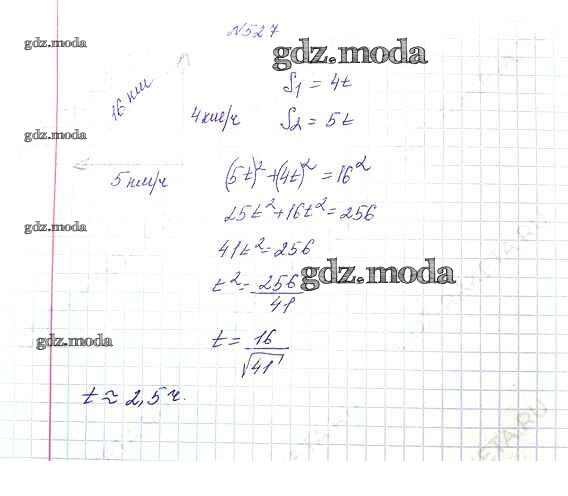 N527
gdz.moda
gdz.moda
S₁ = 4t
16 км
4 км/ч
S₂ = 5t
gdz.moda
5 км/ч
(5t)² + (4t)² = 16²
25t² + 16t² = 256
gdz.moda
41t² = 256
t² = 256/41
gdz.moda
t = 16/√41
gdz.moda
t ≈ 2,5 ч.